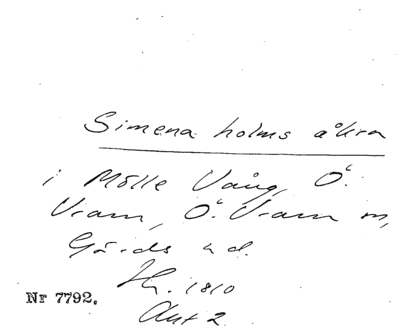 Simena holms åkra
i Mölle Vång, Ö.
Vram, Ö. Vram sn,
Gärds hd.
Nr 7792.
1810
Akt 2